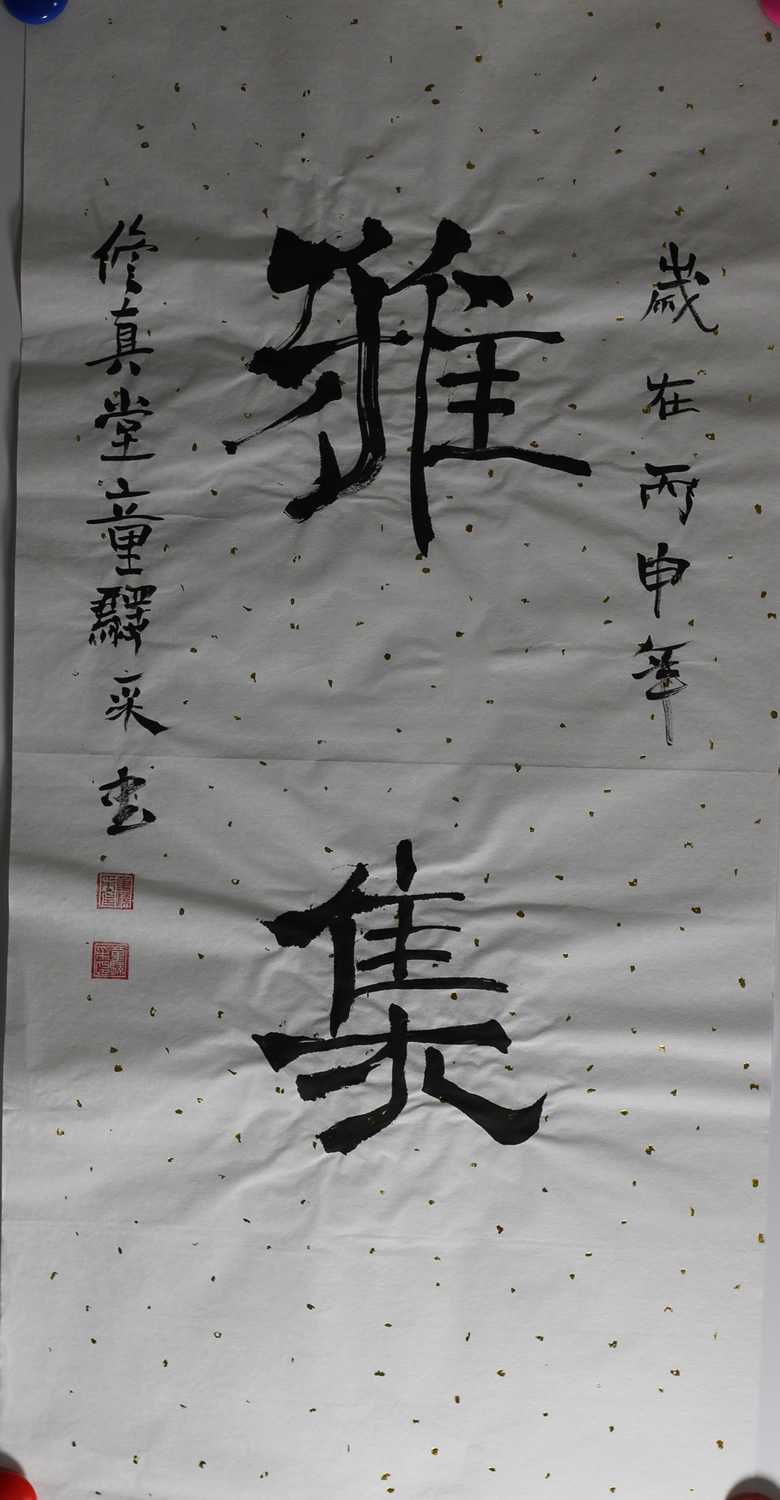 歲在丙申年
雅集
修真堂童驛采書